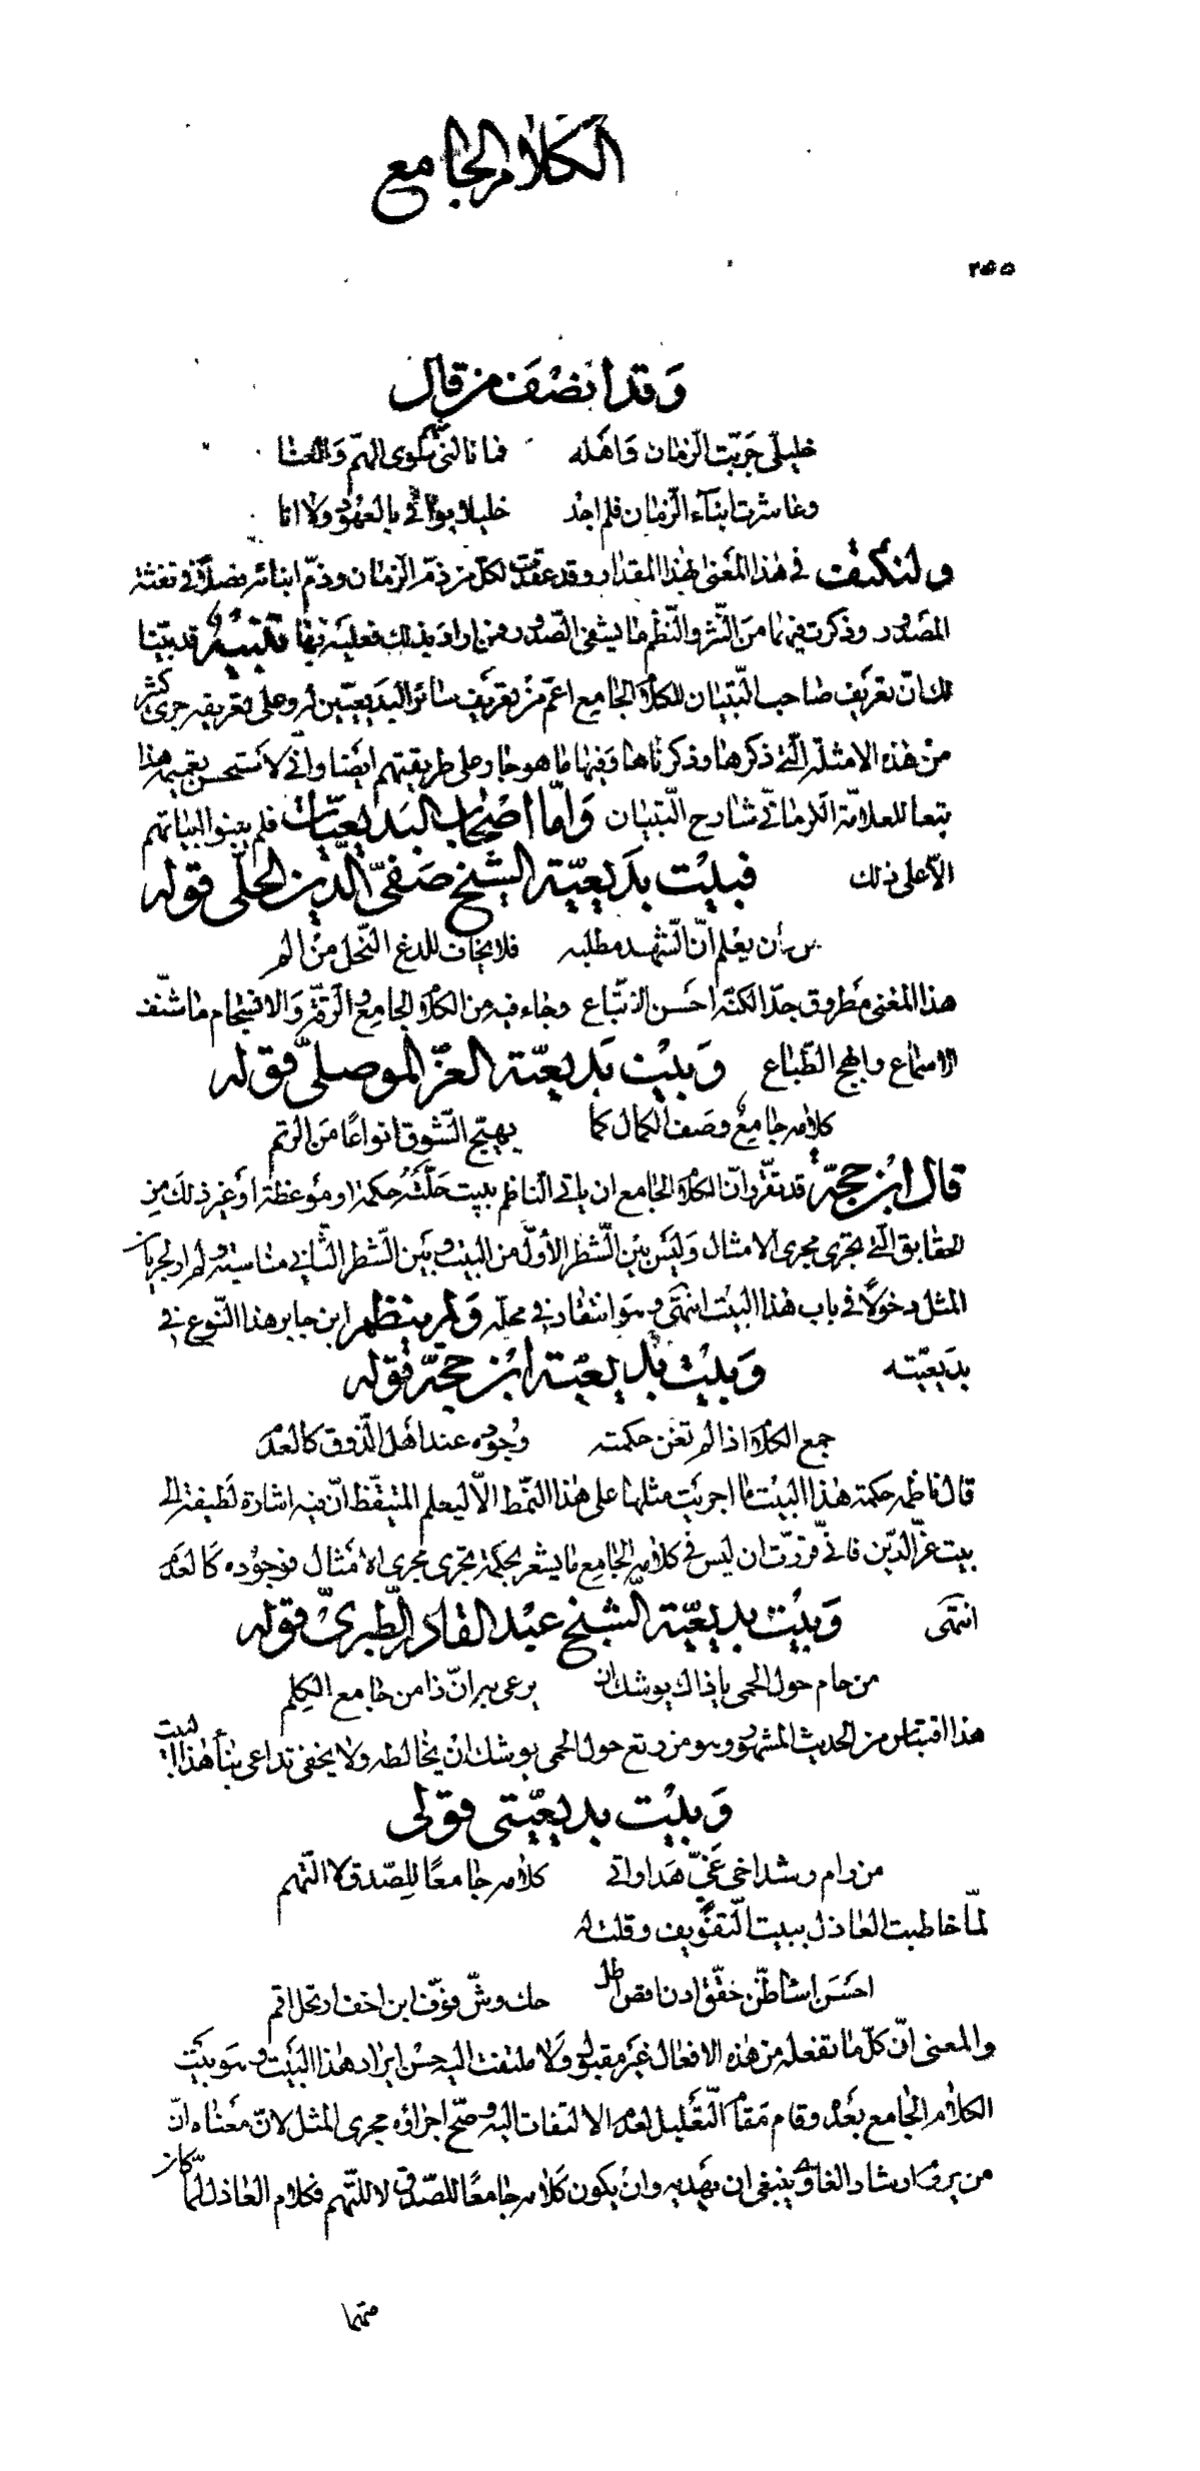 الكلام الجامع
٢٥٥
وَقد انصْفَ من قال
خليليّ جَرّبت الزّمان وَاهَله فما نالني سِوى الهمّ وَالعنا
وعاشرت ابنآء الزّمان فلم اجدْ خليلا يوافي بالعهُود ولا انا
ولنكتف في هذا المَعنى بهذا المقدار وقد عقدت لكلّ من ذمّ الزّمان وذمّ ابنائه فصلًا في نفثة
المصَدُور وذكرت فيهما منَ النّثر والنّظم ما يشفى الصّدور فمن اراد ذلك فعليَه بها تنبيهٌ قد بيّنا
لك انّ تعريف صاحب التّبيان للكلام الجامع اعمّ من تعريَف سائر البديعيّين له وعلى تعريفه جرى كثير
منْ هذه الامثلة الّتي ذكرها وذكرناها وَفيها ما هو جار على طريقتهم ايضا وانّي لاستحسن تعميمه هذا
تبعا للعلامّة الكرماني شارح التّبيان وَامّا اصْحاب البَديعيّات فلم يبنو ابياتهم
الّا على ذلك فبيْت بَديعيّة الشيخ صَفيّ الدّين الحلّي قوله
من كان يعْلم انّ الشّهد مطلبه فلا يخاف للدغ النّحل منْ الم
هذا المعنى مَطروق جدّا لكنّه احسَن الاتّباع وجاء فيه من الكلام الجامع والرّقّة وَالانسجام ما شنّف
الاسماع وابهج الطّباع وَبيْت بَديعيّة العزّ الموصليّ قوله
كلامه جامعٌ وصَف الكمال كما يهيّج الشّوق انواعًا مَن الرّتم
قال ابْن حجّة قد تقرّر انّ الكلام الجامع ان ياتي النّاظم ببيت جملته حكمة او موَعظة او غير ذلك من
الحقايق الّتي تجَرى مجرى الامثال وَليسَ بيْن الشّطر الأوّل من البيت وبَين الشّطر الثّاني مناسبة ولم ار لجريان
المثل دخولًا في باب هذا البيْت انتهَى وهوَ انتقاد في محلّه وَلم ينظم ابن جابر هذا النّوع في
بدَيعيّته وَبيْت بديعيّة ابْن حجّة قوله
جمع الكلام اذا لم تغن حكمته وُجُوده عند اهَل الذّوق كالعدَم
قال ناظمه حكمة هذا البيْت ما اجريَت مثلها على هذا النّمَط الّا ليعلم المتيقّظ انّ فيه اشارة لَطيفة الى
بيت عزّ الدّين فانّي قرّرت ان ليس في كلامه الجامع ما يشعر بحكمة تجَرى مجَرى الامَثال فوجُوده كَالعدَم
انتهَى وَبيْت بديعيّة الشّيخ عبْد القادر الطّبريّ قوله
من حام حول الحمى يا ذاك يوشك ان يرعى به انّ ذا من جامع الكلِم
هذا اقتباس من الحديث المشهور وهو من رتع حول الحمى يوشك انْ يخالطه ولا يخفى تداعى بنَأ هذا البيت
وَبيْت بديعيّتي قولى
من رام رشد اخى غَيّ هَدا واتى كلامه جامعًا للِصّدق لا التّهم
لمّا خاطبت العاذل ببيت التّفوّيف وقلت له
احسَن اسأ ظنّ حقّق ادن اقص اطل حك وشّ فوّف ابن اخف ارتحل اقم
والمعنى انّ كلّ ما تفعله من هذه الافعال غيَر مقبول وَلا ملتفت اليه حسُن ايراد هذا البيَت وهوَ بيَت
الكلام الجامع بعَدْ وقام مَقام التّعَليل لعدم الالتفات اليه وَصحّ اجراؤه مجرى المثل لانّ معَناه انّ
من يروم ارشاد الغاوى ينبغي ان يهَديه وانْ يكون كَلامه جامعًا للصّدق لا للتّهم فكلام العاذل لمّا كان
متّهما